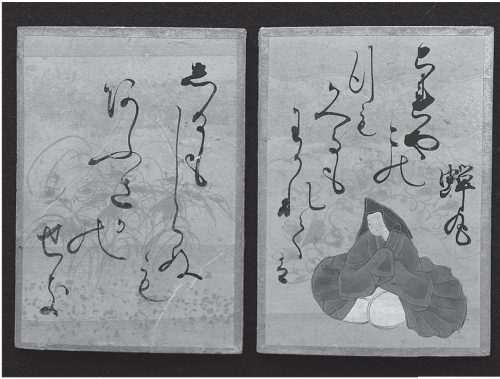 蝉丸
これや
この
行も
かへるも
わかれては
しるも
しらぬ
も
あふさか
の
せき